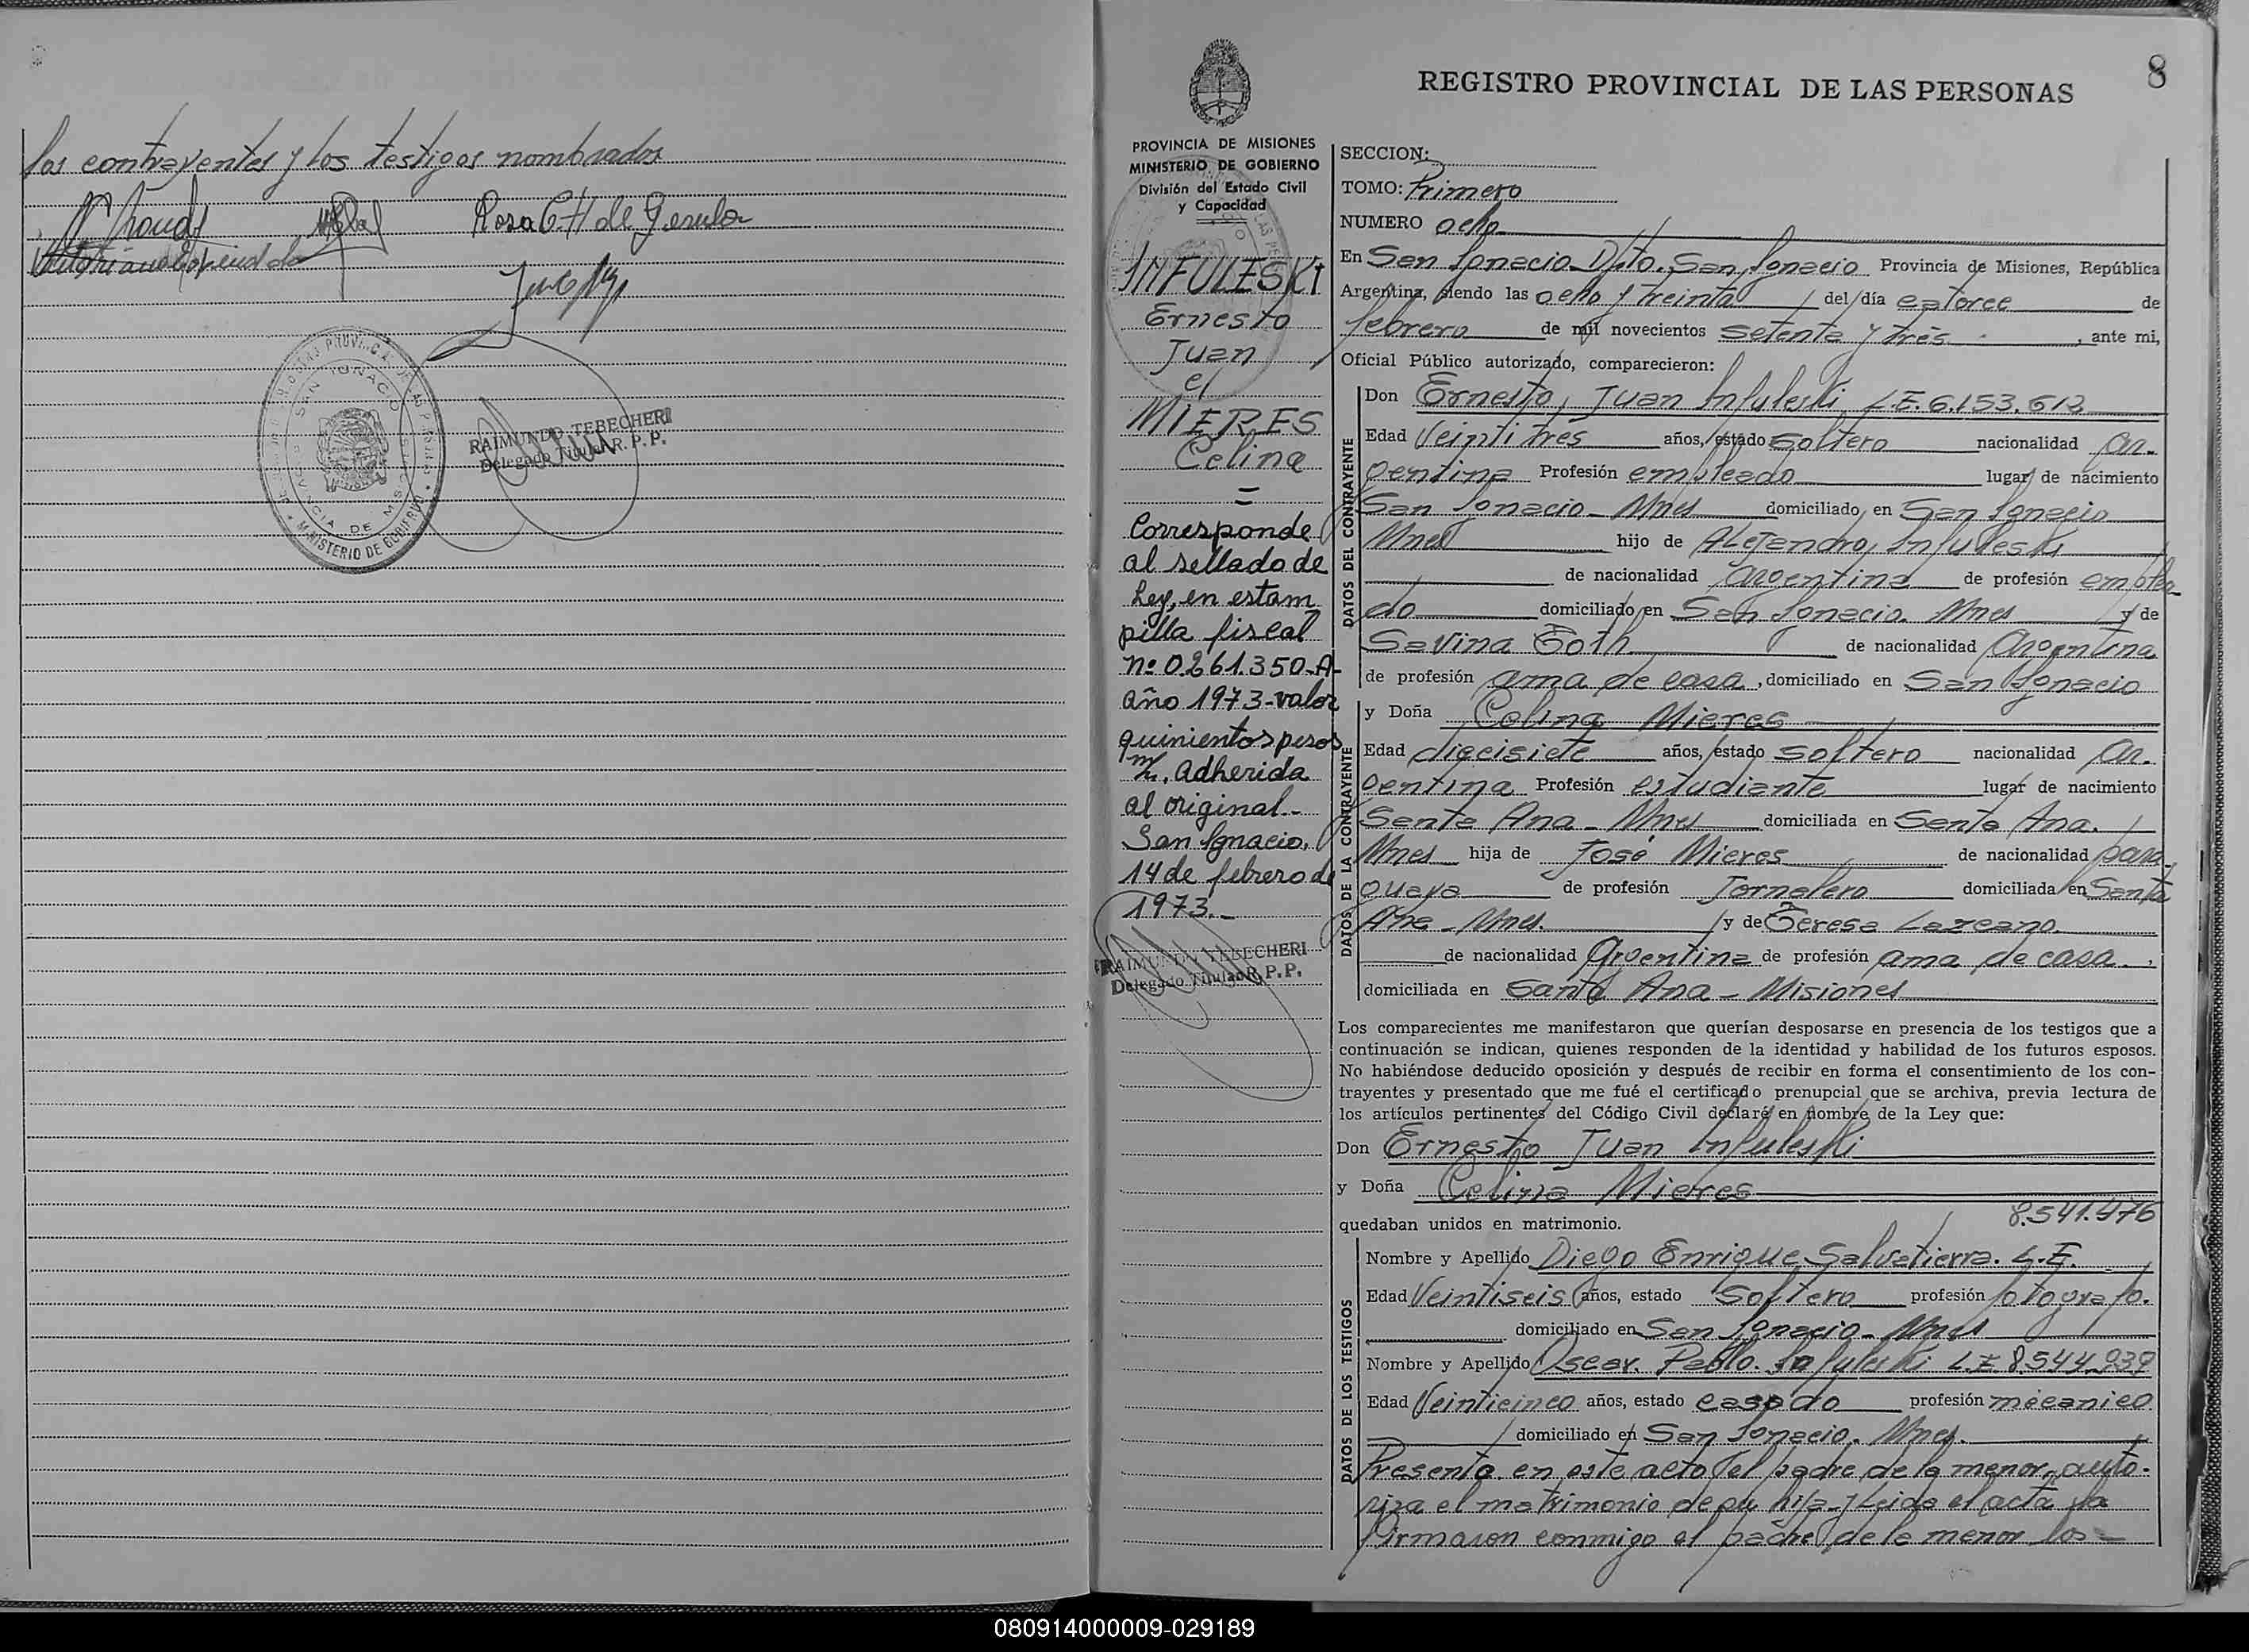 los contrayentes y los testigos nombrados
Rosa C. H de
SAN IGNACIO
MINISTERIO DE GOBIERNO
RAIMUNDO TEBECHERI
Delegado Titular R. P. P.
8
REGISTRO PROVINCIAL DE LAS PERSONAS
PROVINCIA DE MISIONES
MINISTERIO DE GOBIERNO
División del Estado Civil
y Capacidad
INFULESKI
Ernesto
Juan
y
MIERES
Celina
=
Corresponde
al sellado de
Ley, en estam
pilla fiscal
nº 0.261.350-A-
año 1973-valor
quinientos pesos
m/n. adherida
al original.-
San Ignacio,
14 de febrero de
1973.-
RAIMUNDO TEBECHERI
Delegado Titular R. P. P.
SECCION:
TOMO: Primero
NUMERO ocho
En San Ignacio Dpto. San Ignacio Provincia de Misiones, República
Argentina, siendo las ocho y treinta del día catorce de
febrero de mil novecientos setenta y trés , ante mi,
Oficial Público autorizado, comparecieron:
DATOS DEL CONTRAYENTE
Don Ernesto Juan Infuleski L.E. 6.153.612
Edad Veintitrés años, estado soltero nacionalidad ar-
gentina Profesión empleado lugar de nacimiento
San Ignacio - Mnes domiciliado en San Ignacio
Mnes hijo de Alejandro Infuleski
de nacionalidad argentina de profesión emplea-
do domiciliado en San Ignacio. Mnes y de
Savina Toth de nacionalidad argentina
de profesión ama de casa , domiciliado en San Ignacio
DATOS DE LA CONTRAYENTE
y Doña Celina Mieres
Edad diecisiete años, estado soltero nacionalidad ar-
gentina Profesión estudiante lugar de nacimiento
Santa Ana - Mnes domiciliada en Santa Ana.
Mnes hija de José Mieres de nacionalidad para-
guaya de profesión Jornalero domiciliada en Santa
Ana - Mnes. y de Teresa Lezcano
de nacionalidad Argentina de profesión ama de casa. ,
domiciliada en Santa Ana - Misiones
Los comparecientes me manifestaron que querían desposarse en presencia de los testigos que a
continuación se indican, quienes responden de la identidad y habilidad de los futuros esposos.
No habiéndose deducido oposición y después de recibir en forma el consentimiento de los con-
trayentes y presentado que me fué el certificado prenupcial que se archiva, previa lectura de
los artículos pertinentes del Código Civil declaré en nombre de la Ley que:
Don Ernesto Juan Infuleski
y Doña Celina Mieres
quedaban unidos en matrimonio. 8.541.476
DATOS DE LOS TESTIGOS
Nombre y Apellido Diego Enrique Salvatierra. L.E.
Edad Veintiseis años, estado Soltero profesión fotografo.
domiciliado en San Ignacio - Mnes
Nombre y Apellido Oscar. Pablo. Infuleski L.E 8.544.939
Edad Veinticinco años, estado casado profesión mécanico
domiciliado en San Ignacio. Mnes.
Presente en este acto el padre de la menor, auto-
riza el matrimonio de su hija y Leida el acta la
firmaron conmigo el padre de la menor los -
080914000009-029189